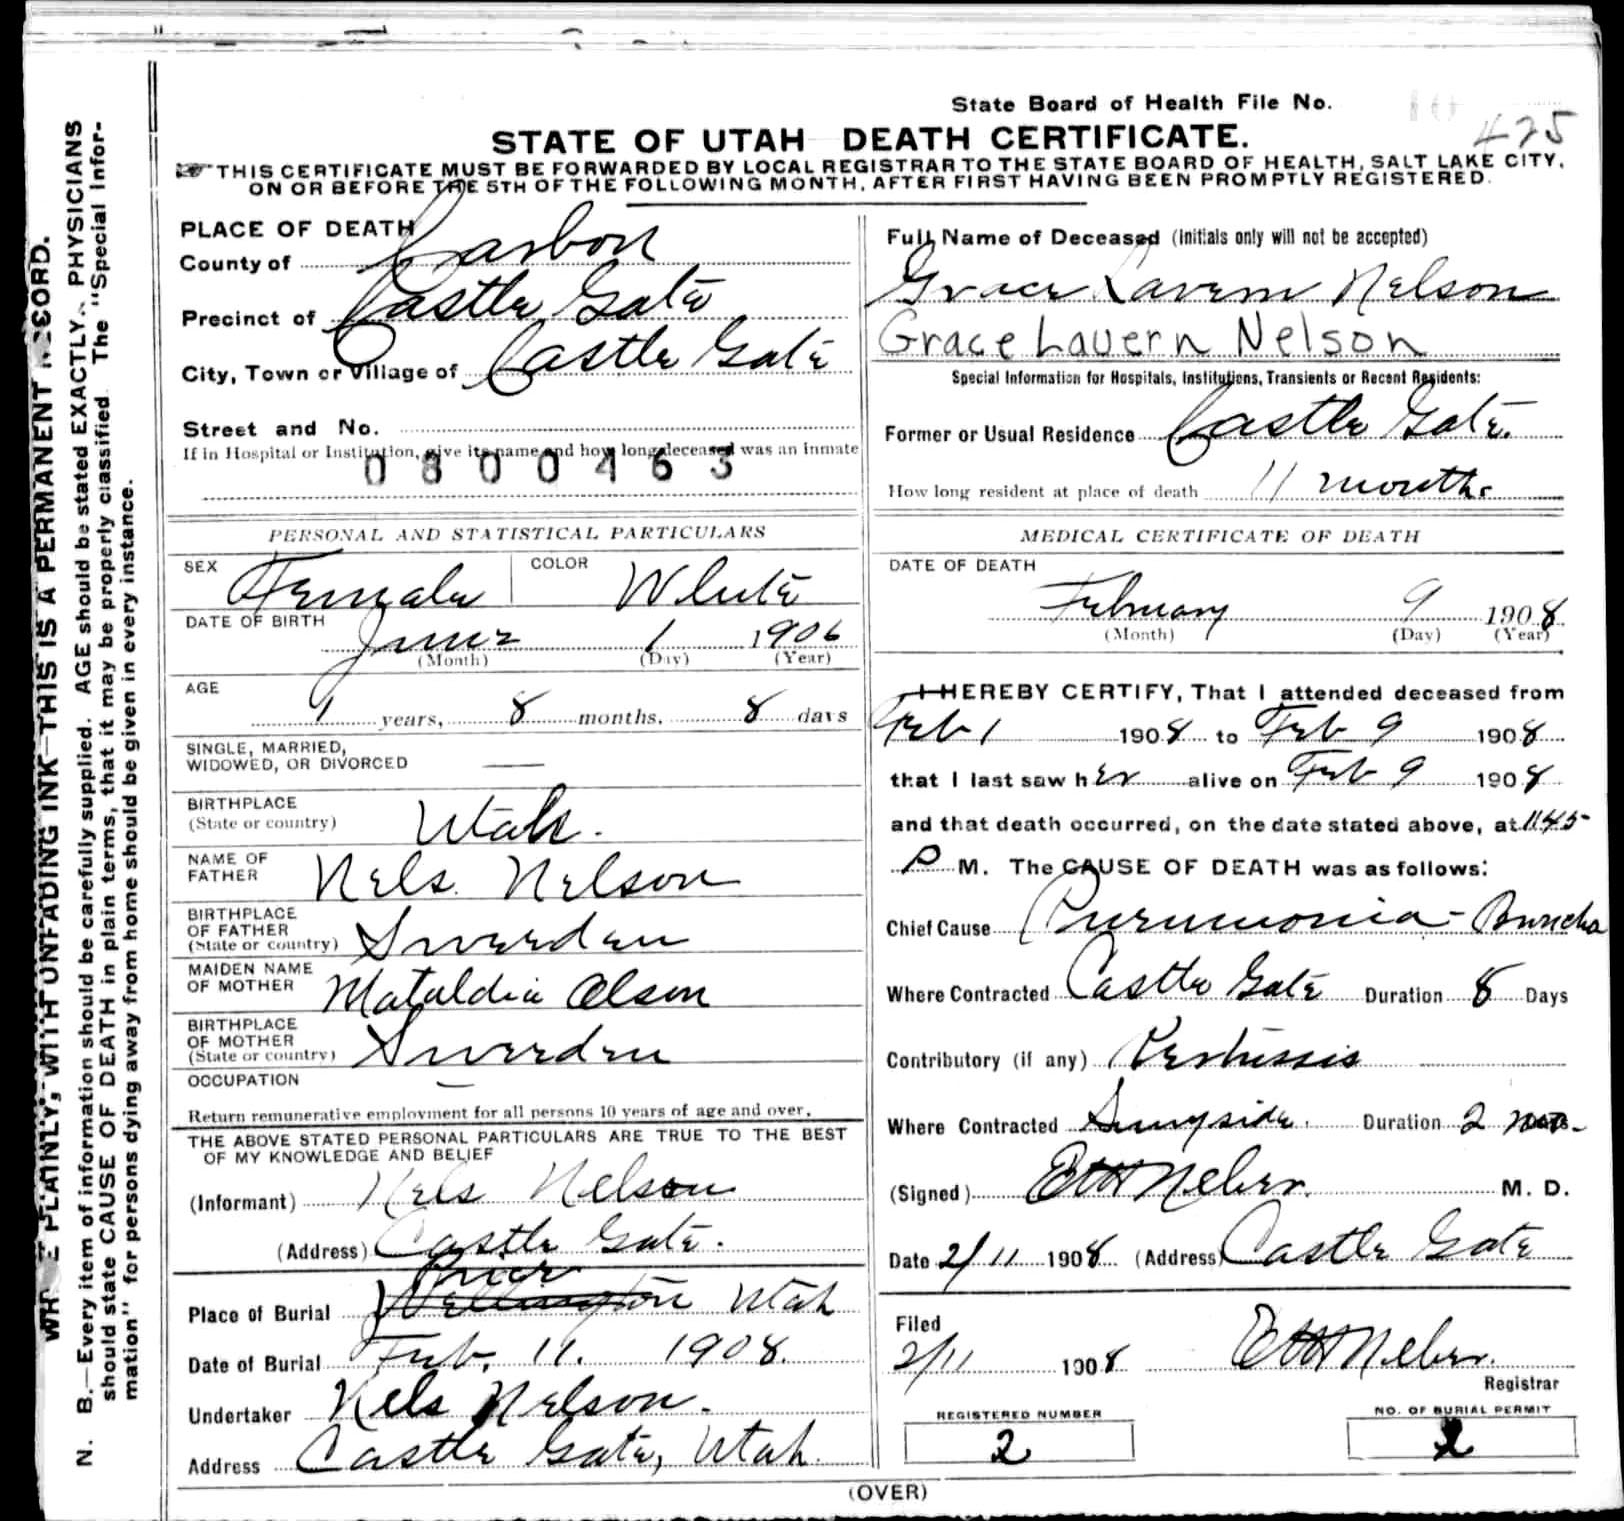 State Board of Health File No. 425
STATE OF UTAH DEATH CERTIFICATE.
THIS CERTIFICATE MUST BE FORWARDED BY LOCAL REGISTRAR TO THE STATE BOARD OF HEALTH, SALT LAKE CITY,
ON OR BEFORE THE 5TH OF THE FOLLOWING MONTH, AFTER FIRST HAVING BEEN PROMPTLY REGISTERED.
WRITE PLAINLY, WITH UNFADING INK—THIS IS A PERMANENT RECORD.
N. B.—Every item of information should be carefully supplied. AGE should be stated EXACTLY. PHYSICIANS
should state CAUSE OF DEATH in plain terms, that it may be properly classified. The "Special Infor-
mation" for persons dying away from home should be given in every instance.
PLACE OF DEATH
County of Carbon
Precinct of Castle Gate
City, Town or Village of Castle Gate
Street and No.
If in Hospital or Institution, give its name and how long deceased was an inmate
0800463
PERSONAL AND STATISTICAL PARTICULARS
SEX Female COLOR White
DATE OF BIRTH June 1 1906
(Month) (Day) (Year)
AGE 1 years, 8 months, 8 days
SINGLE, MARRIED,
WIDOWED, OR DIVORCED —
BIRTHPLACE
(State or country) Utah.
NAME OF
FATHER Nels Nelson
BIRTHPLACE
OF FATHER
(State or country) Sweeden
MAIDEN NAME
OF MOTHER Mataldia Olson
BIRTHPLACE
OF MOTHER
(State or country) Sweeden
OCCUPATION —
Return remunerative employment for all persons 10 years of age and over.
THE ABOVE STATED PERSONAL PARTICULARS ARE TRUE TO THE BEST
OF MY KNOWLEDGE AND BELIEF
(Informant) Nels Nelson
(Address) Castle Gate.
Price
Place of Burial Wellington Utah
Date of Burial Feb. 11. 1908.
Undertaker Nels Nelson.
Address Castle Gate, Utah.
Full Name of Deceased (Initials only will not be accepted)
Grace Lavern Nelson
Grace Lavern Nelson
Special Information for Hospitals, Institutions, Transients or Recent Residents:
Former or Usual Residence Castle Gate.
How long resident at place of death 11 months
MEDICAL CERTIFICATE OF DEATH
DATE OF DEATH
February 9 1908
(Month) (Day) (Year)
I HEREBY CERTIFY, That I attended deceased from
Feb 1 1908 to Feb 9 1908
that I last saw her alive on Feb 9 1908
and that death occurred, on the date stated above, at 11.45
P M. The CAUSE OF DEATH was as follows:
Chief Cause Pneumonia - Broncho
Where Contracted Castle Gate Duration 8 Days
Contributory (if any) Pertussis
Where Contracted Sunnyside. Duration 2 mos.
(Signed) M. D.
Date 2/11 1908 (Address) Castle Gate
Filed
2/11 1908
Registrar
REGISTERED NUMBER
2
NO. OF BURIAL PERMIT
2
(OVER)